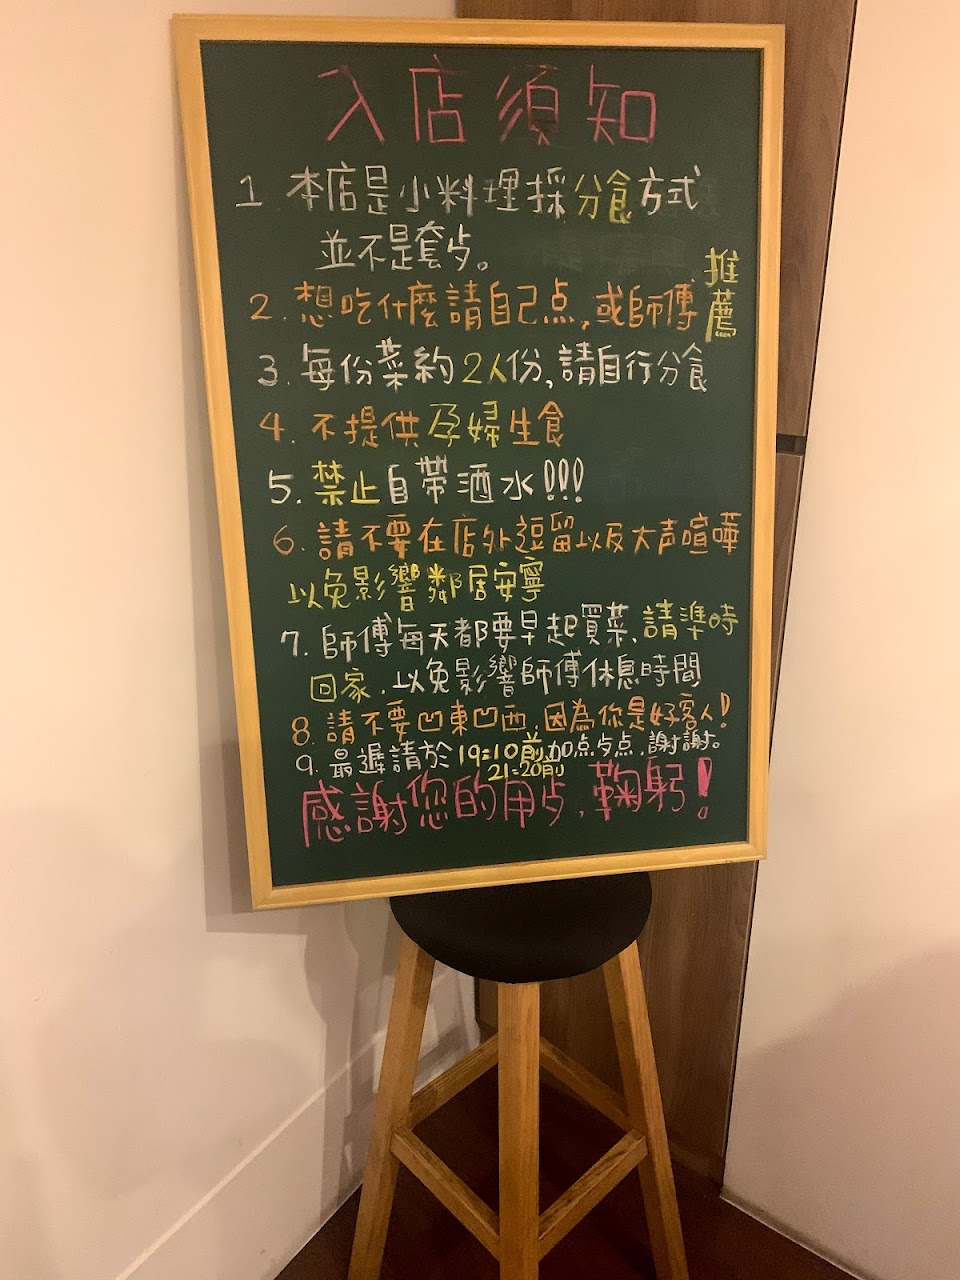 入店須知
1 本店是小料理採分食方式
並不是套歺。
2. 想吃什麼請自己点,或師傅推薦
3. 每份菜約2人份,請自行分食
4. 不提供孕婦生食
5. 禁止自帶酒水!!!
6. 請不要在店外逗留以及大声喧嘩
以免影響鄰居安寧
7. 師傅每天都要早起買菜,請準時
回家.以免影響師傅休息時間
8. 請不要凹東凹西,因為你是好客人!
9. 最遲請於19:10前加点歺点,謝謝。
21:20前
感謝您的用歺,鞠躬!